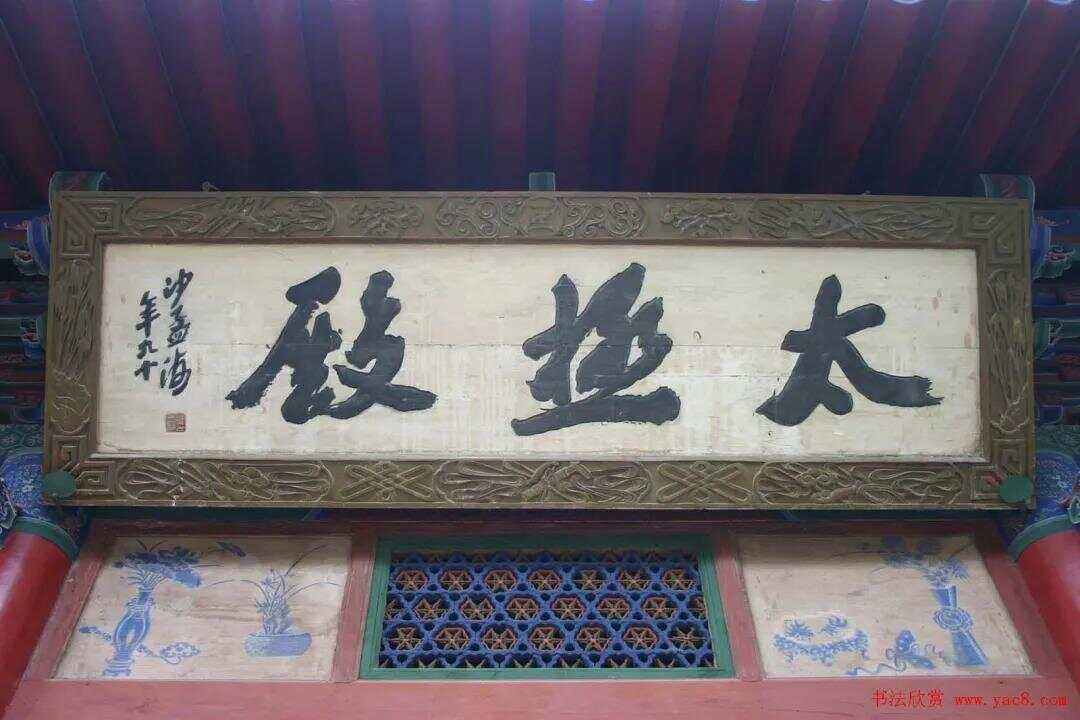 太極殿
沙孟海
年九十
书法欣赏 www.yac8.com